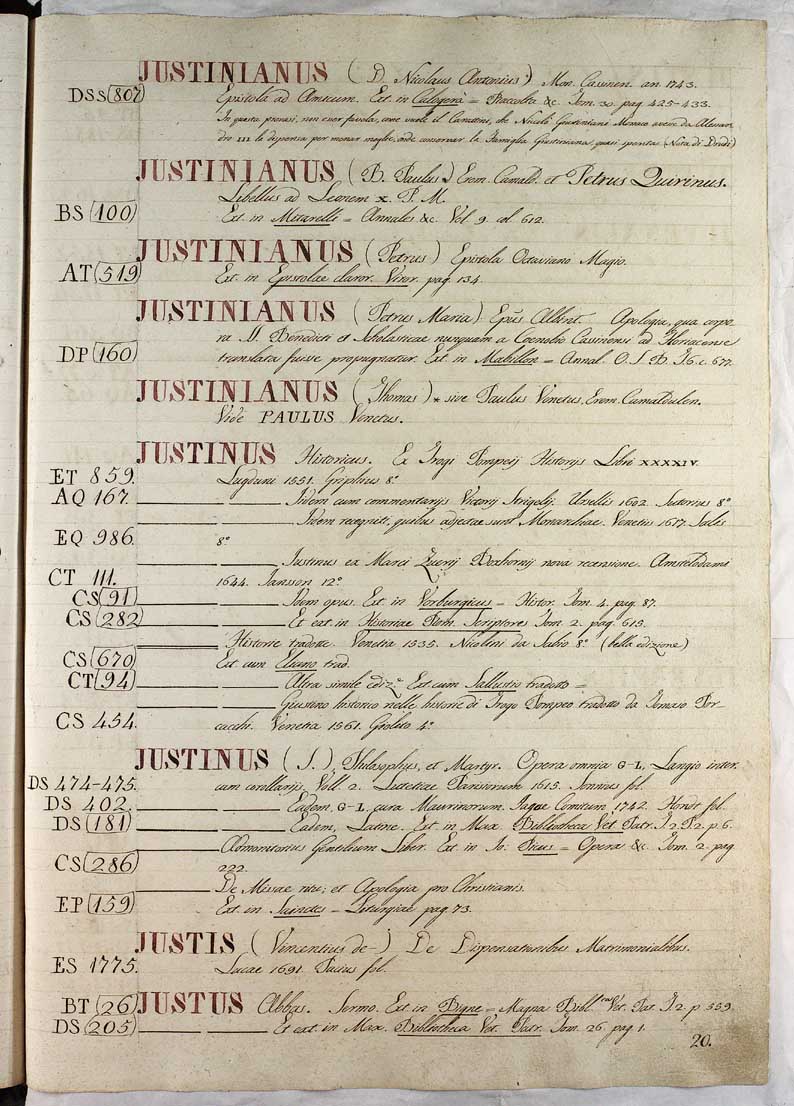 JUSTINIANUS (D. Nicolaus Antonius) Mon. Cassinen. an. 1743.
DSS (807) Epistola ad Amicum. Ext. in Calogerà = Raccolta &c. Tom. 30. pag. 425-433.
In questa provasi, non esser favola, come vuole il Cantoni, che Nicolò Giustiniano Monaco avesse da Alessan-
dro III la dispensa per menar moglie, onde conservar la Famiglia Giustiniana quasi spenta (Nota di)
JUSTINIANUS (B. Paulus) Erem. Camald. et Petrus Quirinus.
Libellus ad Leonem X. P. M.
BS (100) Ext. in Mitarelli = Annales &c. Vol. 9. col. 612.
JUSTINIANUS (Petrus) Epistola Octaviano Magio.
AT (519) Ext. in Epistolae claror. Viror. pag. 134.
JUSTINIANUS (Petrus Maria) Epũs Albint. Apologia, qua corpo-
ra SS. Benedicti et Scholasticae nunquam a Coenobio Cassinensi ad Floriacense
DP (160) translata fuisse propugnatur. Ext. in Mabillon = Annal. O. S. B. T. 6. c. 677.
JUSTINIANUS (Thomas) * sive Paulus Venetus, Erem. Camaldulen.
Vide PAULUS Venetus.
JUSTINUS Historicus. Ex Trogi Pompeij Historijs Libri XXXXIV.
ET 859. Lugduni 1551. Griphius 8.º
AQ 167. Idem cum commentarijs Victorij Strigelij. Ursellis 1602. Sutorius 8.º
Idem recogniti, quibus adjectae sunt Monarchiae. Venetiis 1617.
EQ 986. 8.º
Justinus ex Marci Zuerij Boxhornij nova recensione. Amstelodami
CT 111. 1644. Jansson 12.º
CS (91) Idem opus. Ext. in Vorburgicus = Histor. Tom. 4. pag. 87.
CS (282) Et ext. in Historiae Rom. Scriptores Tom. 2. pag. 613.
Historie tradotte. Venetia 1535. Nicolini da Sabio 8.º (bella edizione)
CS (670) Ext. cum Eliano trad.
CT (94) Altra simile ediz.e Ext. cum Sallustio tradotto =
Giustino historico nelle historie di Trogo Pompeo tradotto da Tomaso Por-
CS 454. cacchi. Venetia 1561. Giolito 4.º
JUSTINUS (S.), Philosophus, et Martyr. Opera omnia G-L, Langio inter.
DS 474-475. cum corollarijs. Voll. 2. Lutetiae Parisiorum 1615. Sonnius fol.
DS 402. Eadem, G-L. cura Maurinorum. Hagae Comitum 1742. Hondt fol.
DS (181) Eadem, Latine. Ext. in Max. Bibliotheca Vet. Patr. T. 2. P. 2. p. 6.
Admonitorius Gentilium Liber. Ext. in Jo: Picus = Opera &c. Tom. 2. pag.
CS (286) 222.
De Missae ritu; et Apologia pro Christianis.
EP (159) Ext. in Sainctes = Liturgiae pag. 73.
JUSTIS (Vincentius de-) De Dispensationibus Matrimonialibus.
ES 1775. Lucae 1691. Pacius fol.
BT (26) JUSTUS Abbas. Sermo. Ext. in Bigne = Magna Bibl. Vet. Pat. T. 2. p. 559.
DS (205) Et ext. in Max. Bibliotheca Vet. Patr. Tom. 26. pag. 1.
20.